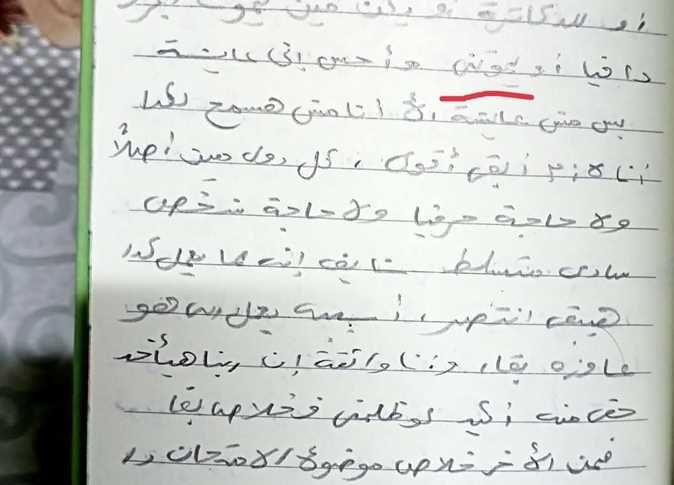 أو للدكاترة
دا فيا أو و أحس إني عايشة
بس مش عايشة لأ أنا مش هسمح بكدا
أنا لازم أبقى أقوى ، كل دول مين أصلاً
ولا حاجة حرفيا ولا حاجة شخص
سادي متسلط شايف إنه لما يعمل كدا
هيبقى انتصر ، أسيبه يعمل اللي هو
عاوزه بقا، وأنا واثقة إن ربنا هيأخد
حقي منه أكيد لو ظلمني فخلاص بقا
فمن الأخر خلاص موضوع الامتحان دا